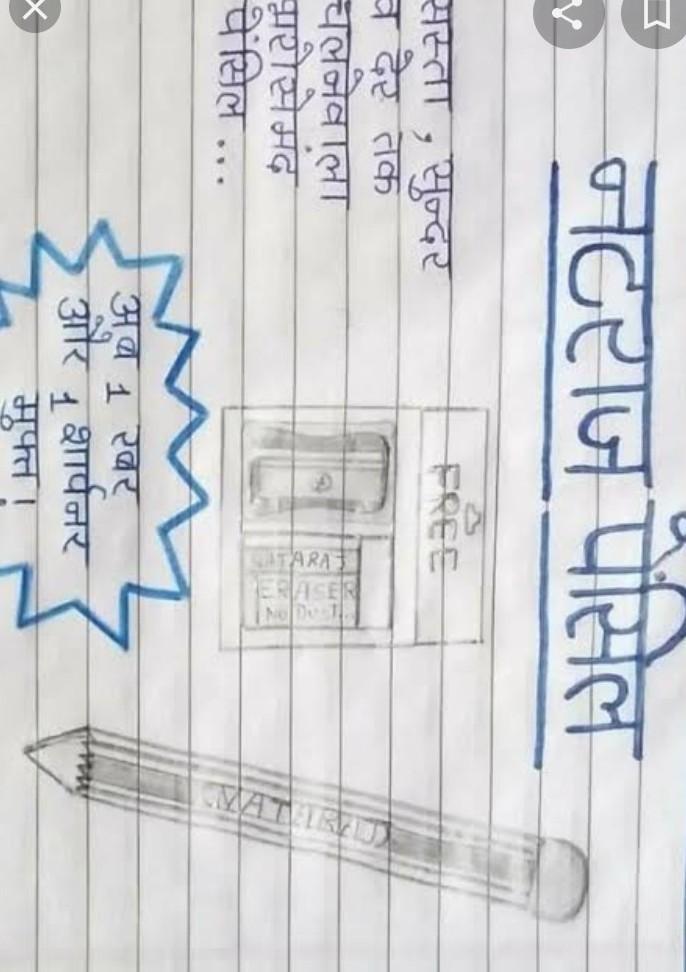 नटराज पेंसिल
सस्ता, सुन्दर
व देर तक
चलनेवाला
भरोसेमंद
पेंसिल ...
FREE
NATARAJ
ERASER
No Dust..
अब 1 रबर
और 1 शार्पनर
मुफ्त!
NATARAJ